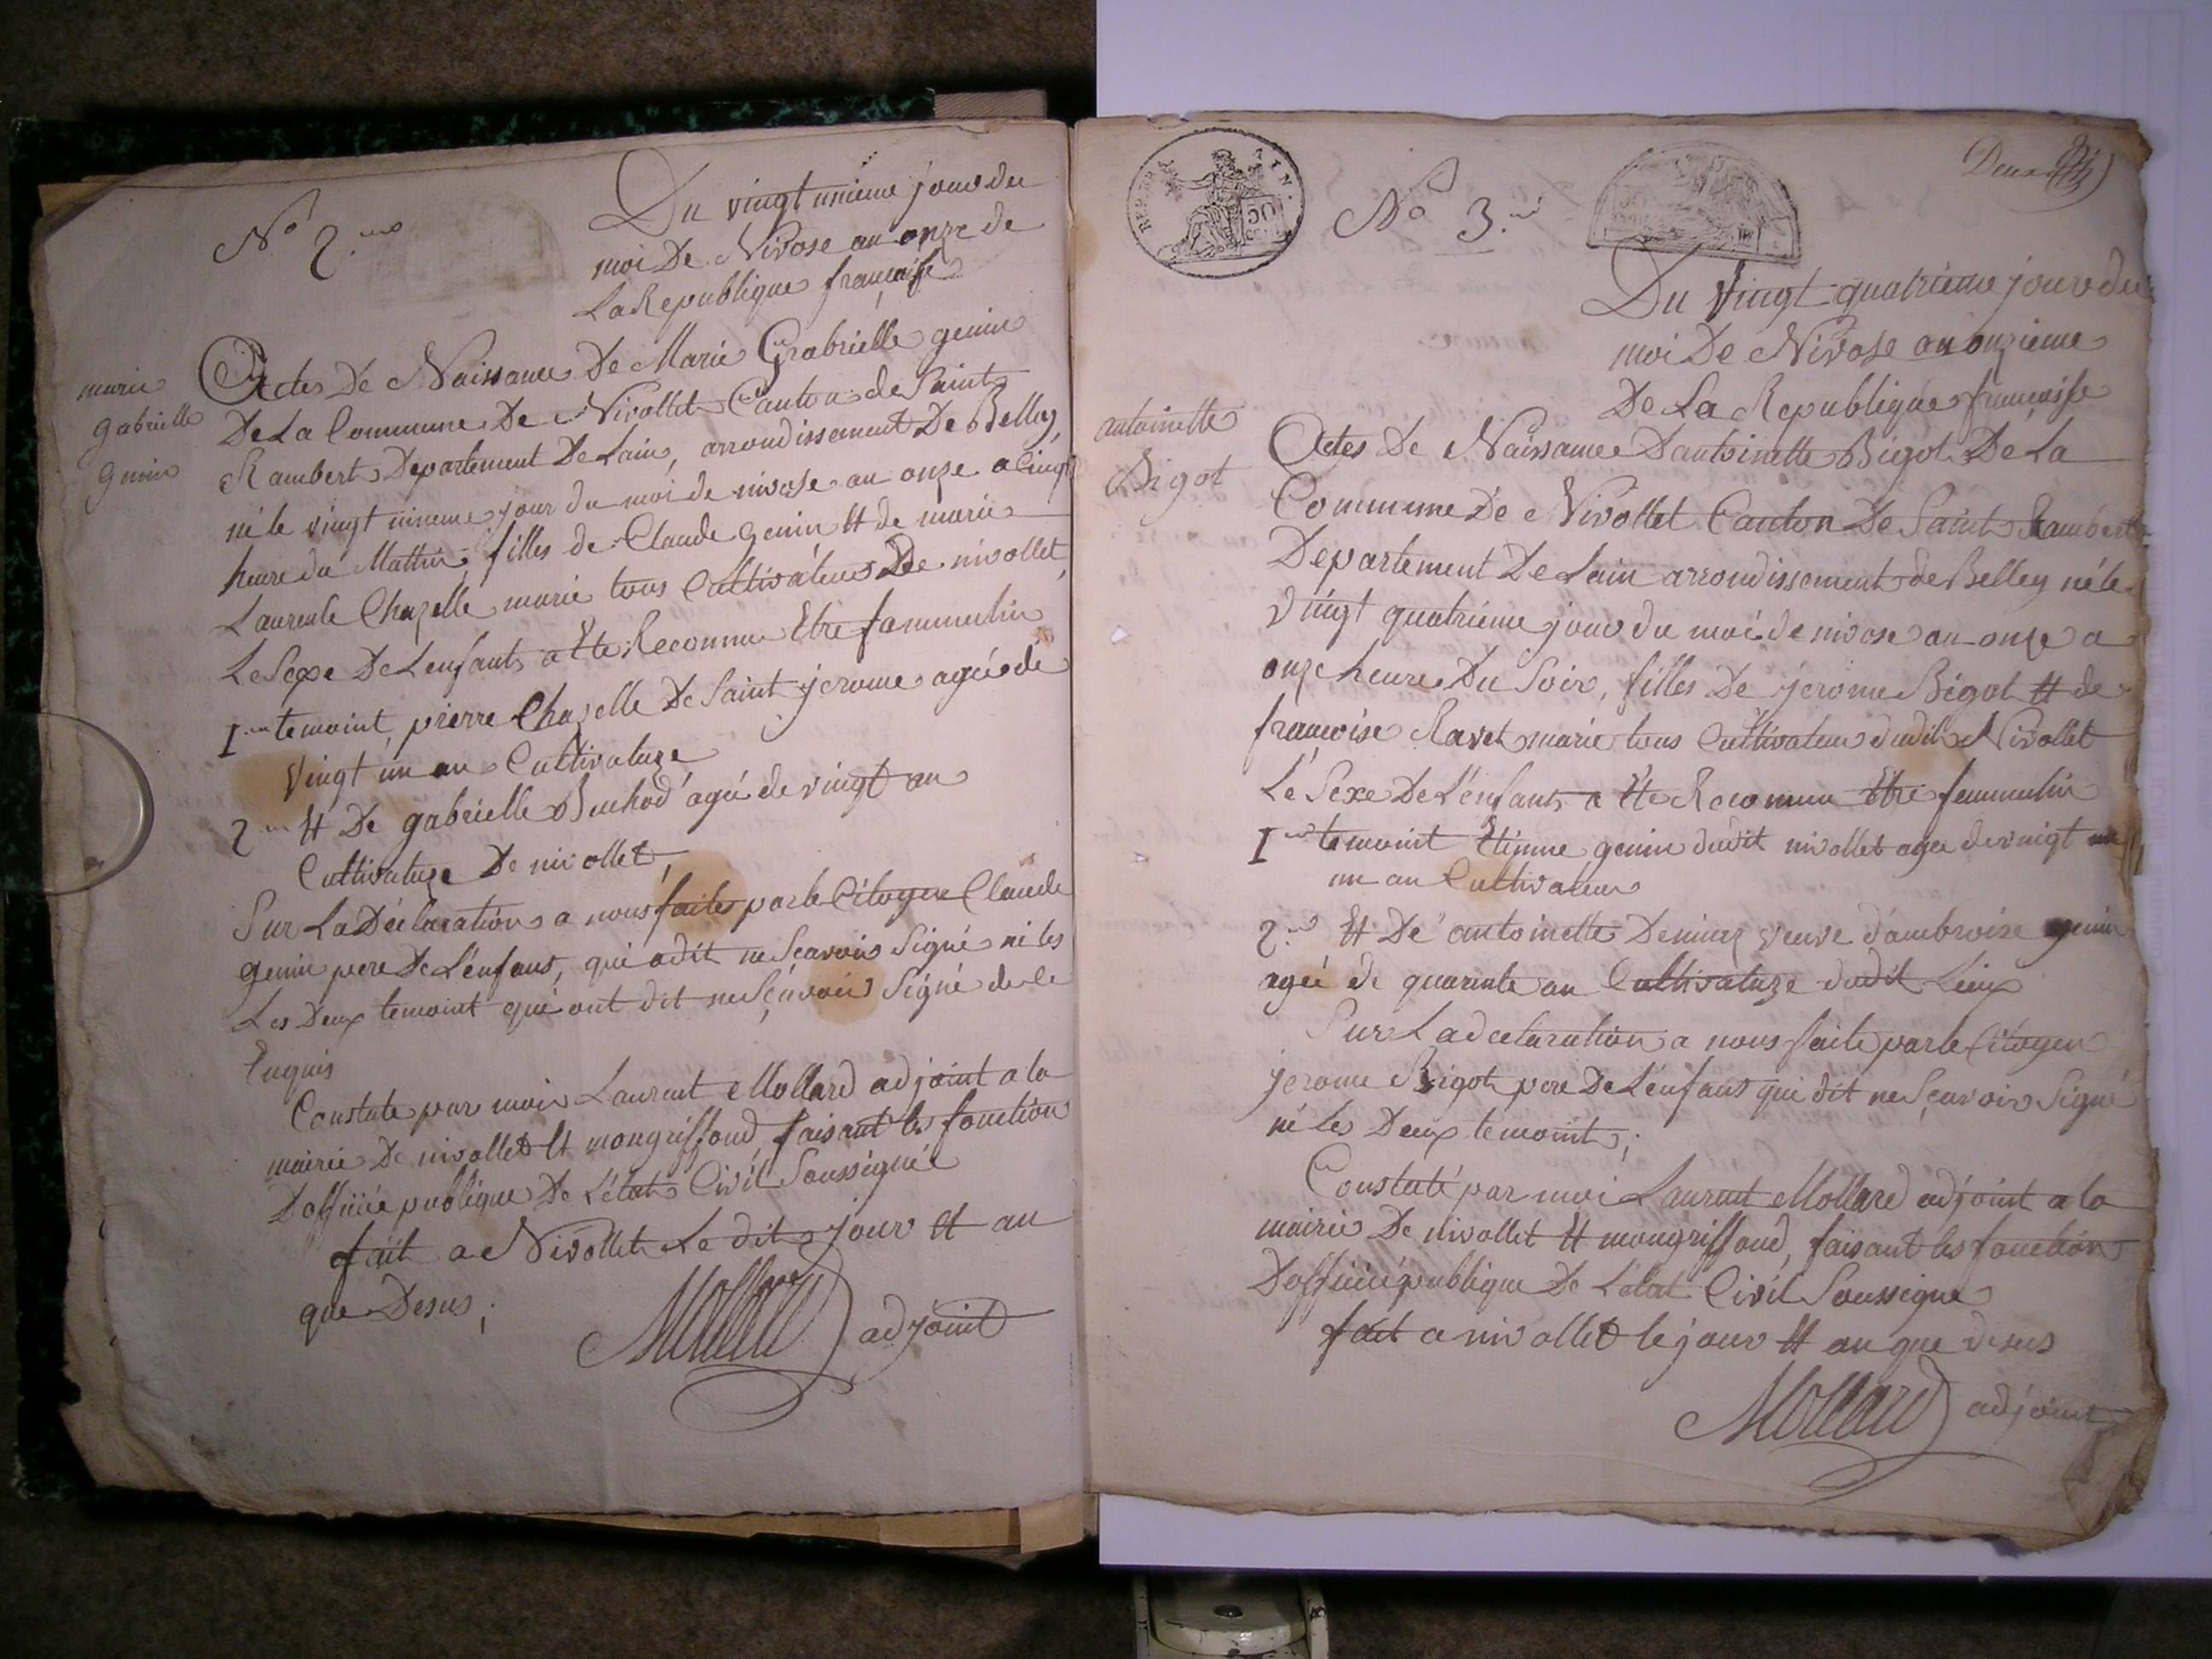 No 2.me
Du vingt unieme jour du
moi De Nivose an onze de
La Republique francaise
marie
gabrielle
genin
Actes De Naissance De Marie Gabrielle genin
De La Commune De Nivollet Canton de Saint
Rambert Departement De Lain, arrondissement De Belley
né le vingt unieme jour du moi de nivose an onze a Cinq
heure du Mattin, filles de Claude genin Et de marie
Laurente Chazelle marié tous Cultivateur De nivollet,
Le Sexe De L'enfants a Ete Reconnu Etre femmulin
1.er temoint, pierre Chazelle De Saint jerome agée de
vingt un an Cultivatuze
2.me Et De gabrielle Buchod agée de vingt an
Cultivatuze De nivollet,
Sur La Déclaration a nous faites par le Citoyen Claude
genin pere De L'enfans, qui a dit ne Scavoir Signé ni les
Les Deux temoint qui ont dit ne Sçavoir Signé de ce
Enquis
Constate par moi Laurent Mollard adjoint a la
mairie De nivollet Et mongriffond, faisant les fonction
D'officié publique De L'état Civil Soussignée
fait a Nivollet Le dit jour Et an
que Desus;
Mollard adjoint
REP. FRA. AIN.
50
No 3.me
Deux
Du Vingt quatrieme jour du
moi De Nivose an onzieme
De La Republique francaise
antoinette
Bigot
Actes De Naissance D'antoinette Bigot De La
Commune De Nivollet Canton De Saint Rambert
Departement De Lain arrondissement de Belley né le
vingt quatrieme jour du moi de nivose an onze a
onze heure Du Soir, filles De jerome Bigot Et de
francoise Ravet marié tous Cultivateur dudit Nivollet
Le Sexe De L'enfants a Ete Reconnu Etre femmulin
1.er temoint Etienne genin dudit nivollet agée de vingt
un an Cultivateur
2.me Et De antoinette Demiaz veuve d'ambroise genin
agée de quarente an Cultivatuze dudit Lieux
Sur La declaration a nous faite par le Citoyen
jerome Bigot pere De L'enfans qui dit ne Sçavoir Signé
ni les Deux temoint;
Constaté par moi Laurent Mollard adjoint a la
mairie De nivollet Et mongriffond, faisant les fonction
D'officié publique De L'état Civil Soussigne
fait a nivollet le jour Et an que desus
Mollard adjoint